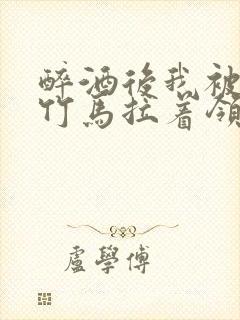 醉酒後我被
竹馬拉着領
盧學傅